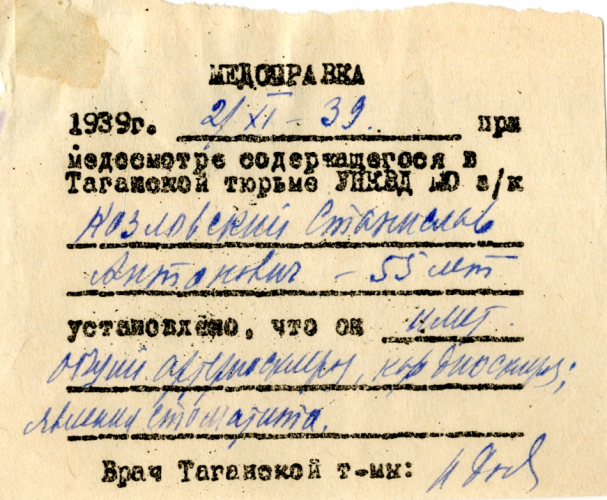 МЕДСПРАВКА
1939г. 21 XI - 39 при
медосмотре содержащегося в
Таганской тюрьме УНКВД МО з/к
Козловский Станислав
Антонович - 55 лет
установлено, что он имеет
общий артериосклероз, кардиосклероз;
явления стоматита.
Врач Таганской т-мы: